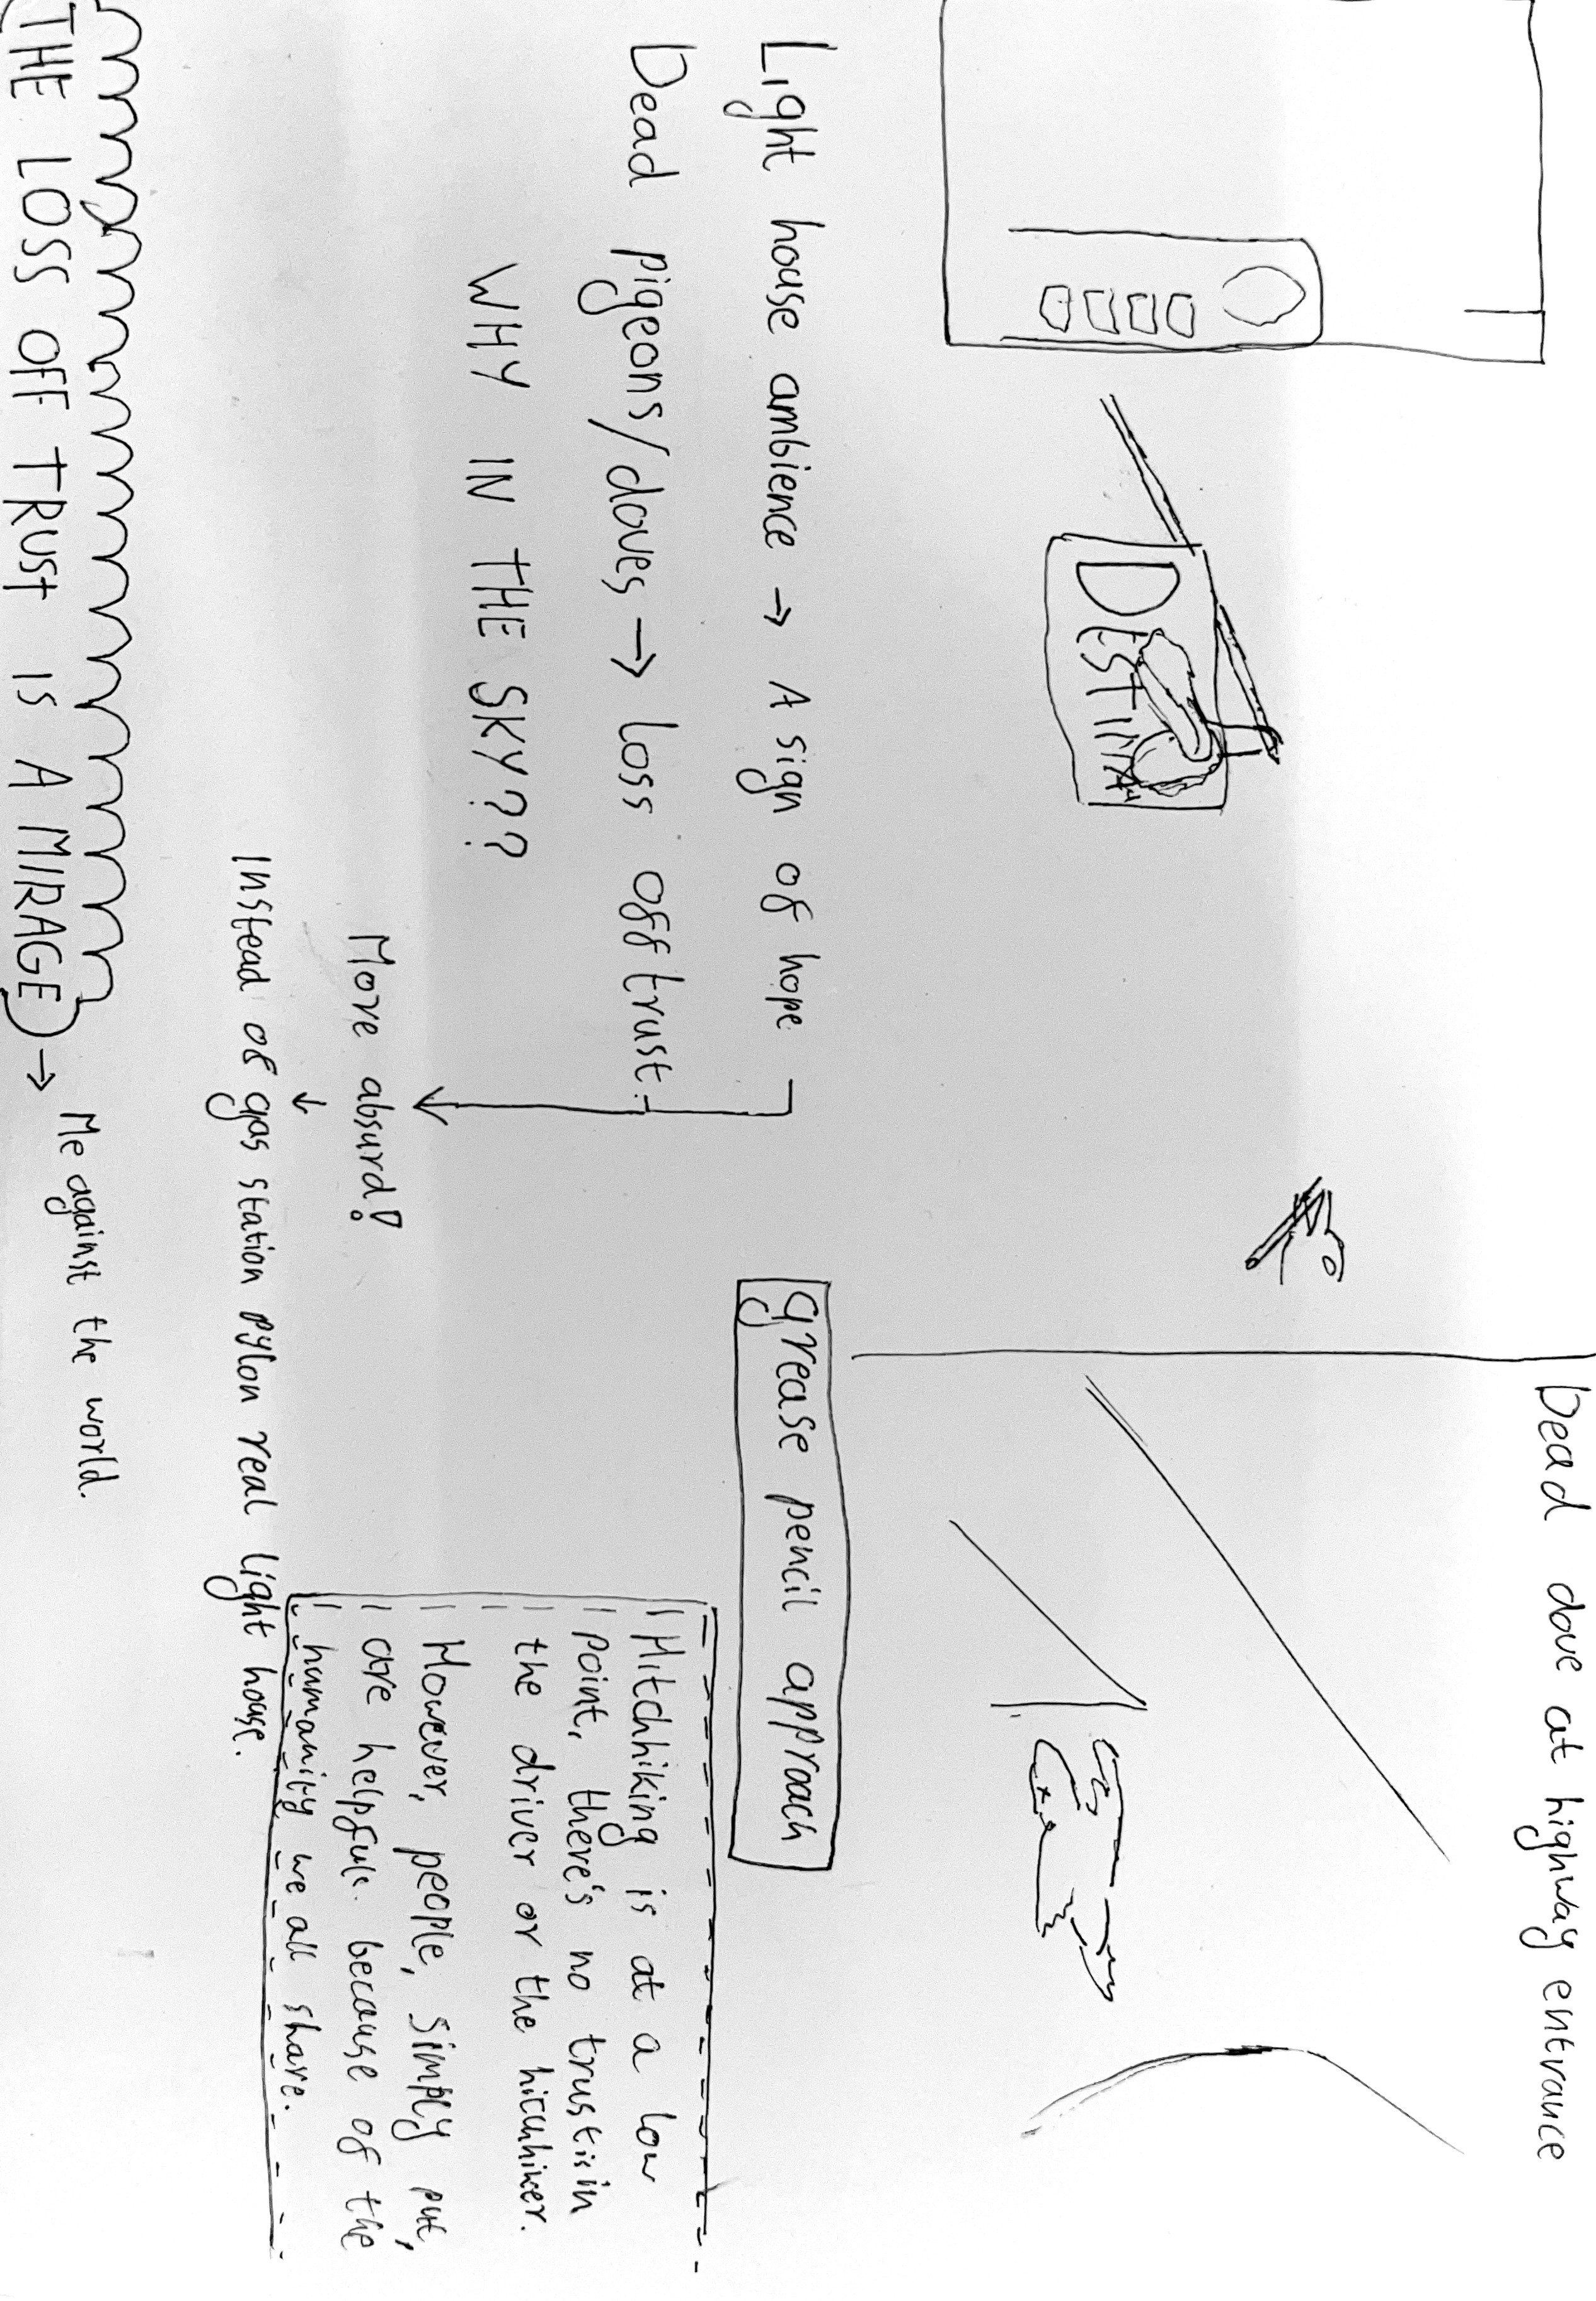 Dead dove at highway entrance
Light house ambience → A sign of hope
Dead pigeons/doves → loss off trust.
WHY IN THE SKY??
Grease pencil approach
More absurd!
Instead of gas station pylon real light house.
Hitchhiking is at a low
point, there's no trust in
the driver or the hitchhiker.
However, people, simply put,
are helpfull because of the
humanity we all share.
THE LOSS OFF TRUST IS A MIRAGE → Me against the world.